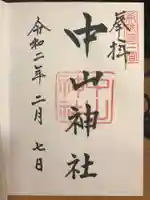 奉拝
中山神社
令和二年二月七日